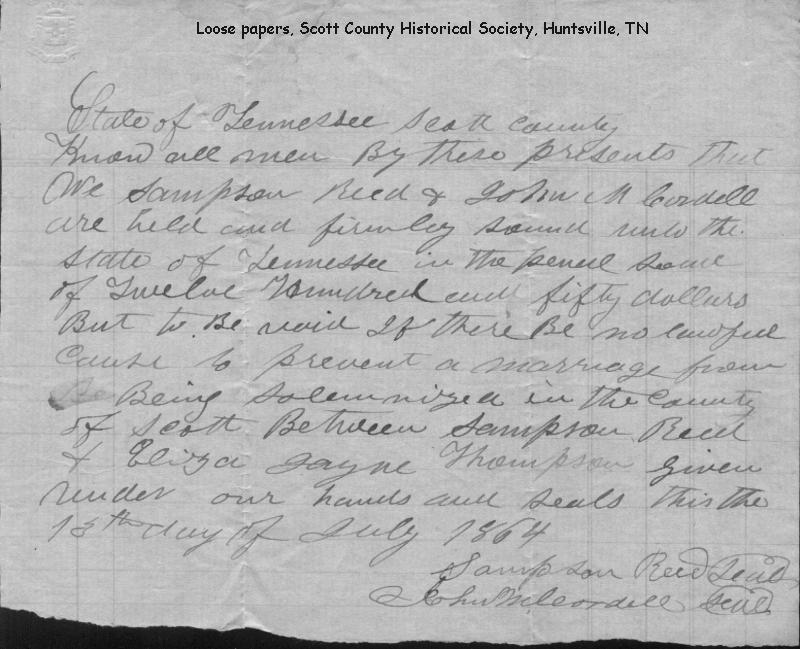 Loose papers, Scott County Historical Society, Huntsville, TN
State of Tennessee Scott County
Know all men By these presents that
We Sampson Reed & John M Cordell
are held and firmley bound unto the
State of Tennessee in the penel some
of Twelve Hundred and fifty dollars
But to Be void If there Be no lawful
Cause to prevent a marriage from
Being solemnized in the County
of Scott Between Sampson Reed
& Eliza Jayne Thompson given
under our hands and seals this the
13th day of July 1864
Sampson Reed Seal
John M Cordell Seal